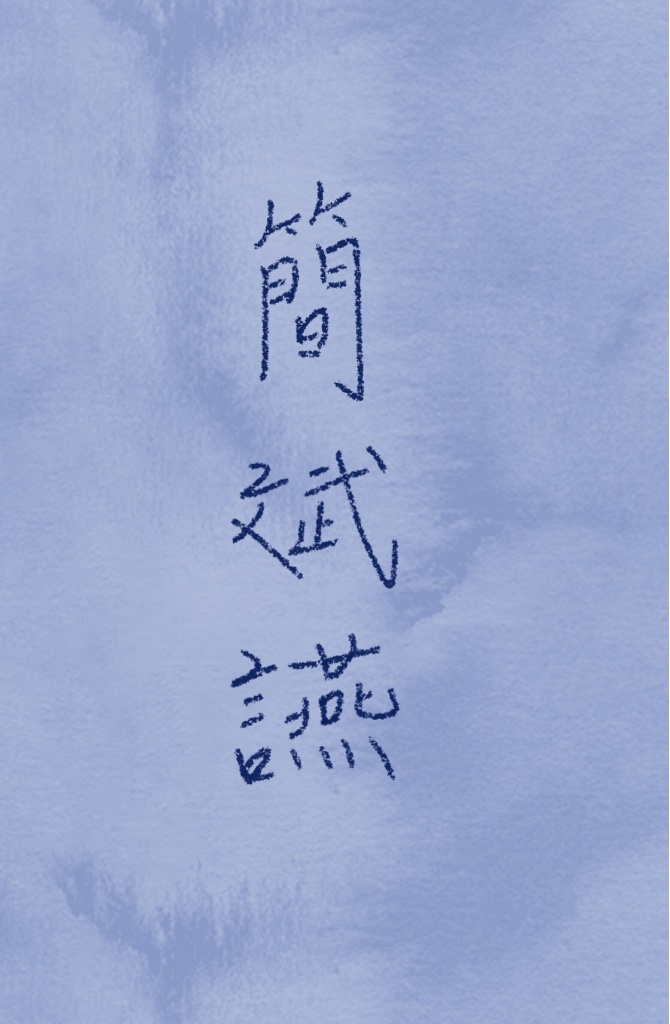 簡斌讌